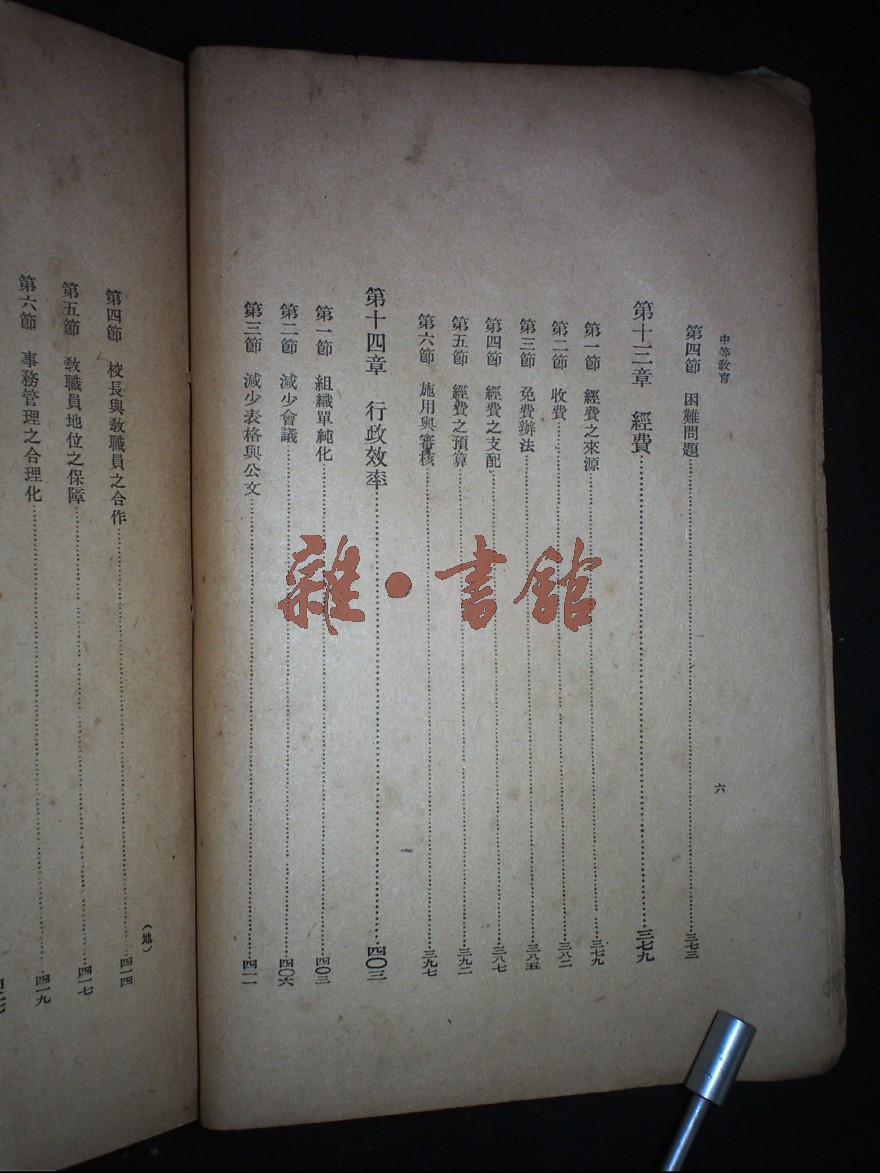 中等教育
六
第四節 困難問題……三七三
第十三章 經費……三七九
第一節 經費之來源……三七九
第二節 收費……三八二
第三節 免費辦法……三八五
第四節 經費之支配……三八七
第五節 經費之預算……三九二
第六節 施用與審核……三九七
第十四章 行政效率……四〇三
第一節 組織單純化……四〇三
第二節 減少會議……四〇六
第三節 減少表格與公文……四一一
(地)
第四節 校長與教職員之合作……四一四
第五節 教職員地位之保障……四一七
第六節 事務管理之合理化……四一九
雜·書館